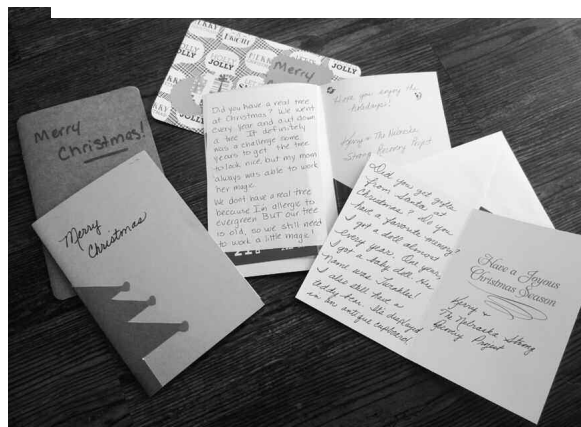 HOLLY
JOLLY
Merry
Merry
Christmas!
Merry
Christmas
Did you have a real tree
at Christmas? We went
every year and cut down
a tree. It definitely
was a challenge some
years to get the tree
to look nice, but my mom
always was able to work
her magic.
We don't have a real tree
because I'm allergic to
evergreen BUT our tree
is old, so we still need
to work a little magic!
Hope you enjoy the
holidays!
The Nebraska
Strong Recovery Project
Did you get gifts
from Santa at
Christmas? Do you
have a favorite memory?
I got a doll almost
every year. One year,
I got a baby doll. Her
name was
I also still have a
teddy bear. It's displayed
in an antique cupboard.
Have a Joyous
Christmas Season
The Nebraska Strong
Recovery Project